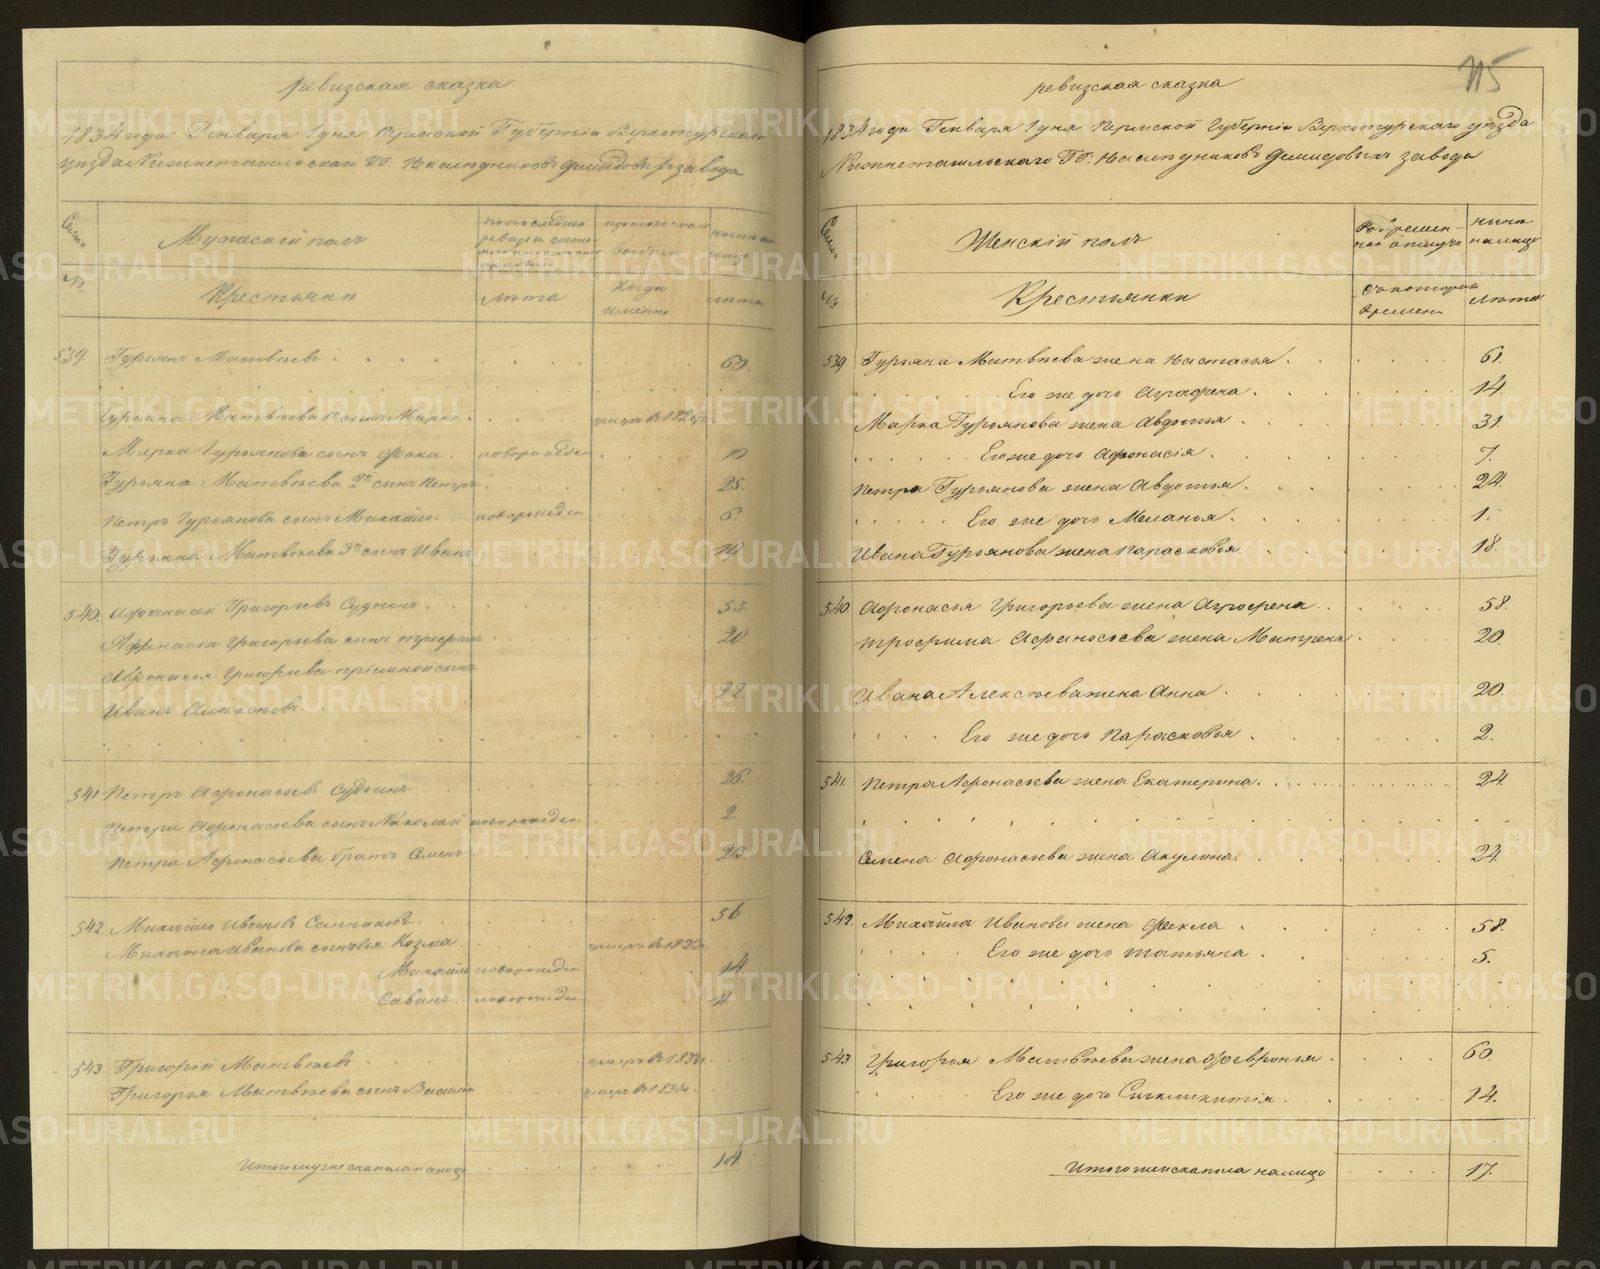 ревизская сказка
1834 года Генваря 1 дня Пермской Губерніи Верхотурскаго
уезда Нижнетагилскаго ГГ. Наследниковъ Демидовыхъ завода
Семьи
Мужескій полъ
№
Крестьяне
лѣта
Когда
именно
лѣта
539. Гурьянъ Матвѣевъ 60.
Гурьяна Матвѣева 1й сынъ Марко умеръ въ
Марка Гурьянова сынъ Фока новорожден 10
Гурьяна Матвѣева 2й сынъ Петръ 25.
Петра Гурьянова сынъ Михайло новорожден 6
Гурьяна Матвѣева 3й сынъ Иванъ 19.
540. Афонасей Григорьевъ Судьинъ 55.
Афонасья Григорьева сынъ Трофимъ 20
Афонасья Григорьева пріемной сынъ
Иванъ 22
541 Петръ Афонасьевъ Судьинъ 26.
Петра Афонасьева сынъ Николай новорожден 2.
Петра Афонасьева братъ Семенъ 23.
542. Михайло Ивановъ Санниковъ 56
Михайла Иванова сыновья: Козма умеръ въ 1823.
Михайло новорожден 14.
новорожден
543. Григорій Матвѣевъ умеръ въ
Григорья Матвѣева сынъ Василій умеръ въ 1830.
Итого мужеска пола налицо 14.
115
ревизская сказка
1834 года Генваря 1 дня Пермской Губерніи Верхотурскаго уезда
Нижнетагилскаго ГГ. Наследниковъ Демидовыхъ завода
Семьи
Женскій полъ
Во времен-
ной отлучкѣ
ныне
налицо
№
Крестьянки
Съ котораго
времени
лѣта
539 Гурьяна Матвѣева жена Настасья 61.
Его же дочь Аграфена 14.
Марка Гурьянова жена Авдотья 31.
Его же дочь Афонасія 7.
Петра Гурьянова жена Авдотья 24.
Его же дочь Меланья 1.
Ивана Гурьянова жена Парасковья 18.
540. Афонасья Григорьева жена Агрофена 58.
Трофима Афоносьева жена Матрена 20.
Ивана Алексѣева жена Анна 20.
Его же дочь Парасковья 2.
541. Петра Афонасьева жена Екатерина 24.
Семена Афонасьева жена Акулина 24.
542. Михайла Иванова жена Фекла 58.
Его же дочь Татьяна 5.
543 Григорья Матвѣева жена Февронья 60.
Его же дочь Сигклитикія 14.
Итого женска пола налицо 17.
METRIKI.GASO-URAL.RU